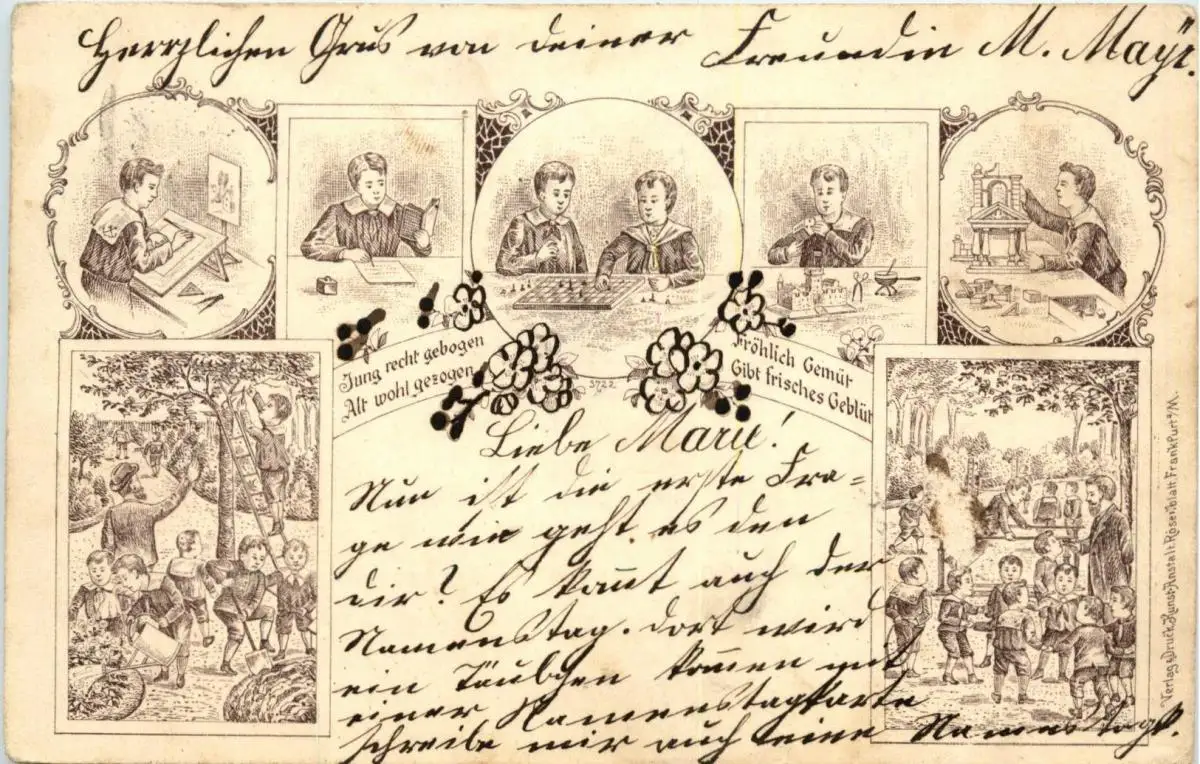 Herzlichen Grus von deiner Freundin M. Mayr.
Jung recht gebogen
Alt wohl gezogen
3722
Fröhlich Gemüt
Gibt frisches Geblüt
Liebe Marie!
Nun ist die erste Fra=
ge wie geht es den
dir? Es kom̄t auch der
Namenstag. dort wird
ein Täubchen kom̄en mit
einer Namenstagkarte
schreibe mir auch keine Namenstagk.
Verlag u. Druck Kunst-Anstalt Rosenblatt Frankfurt a/M.